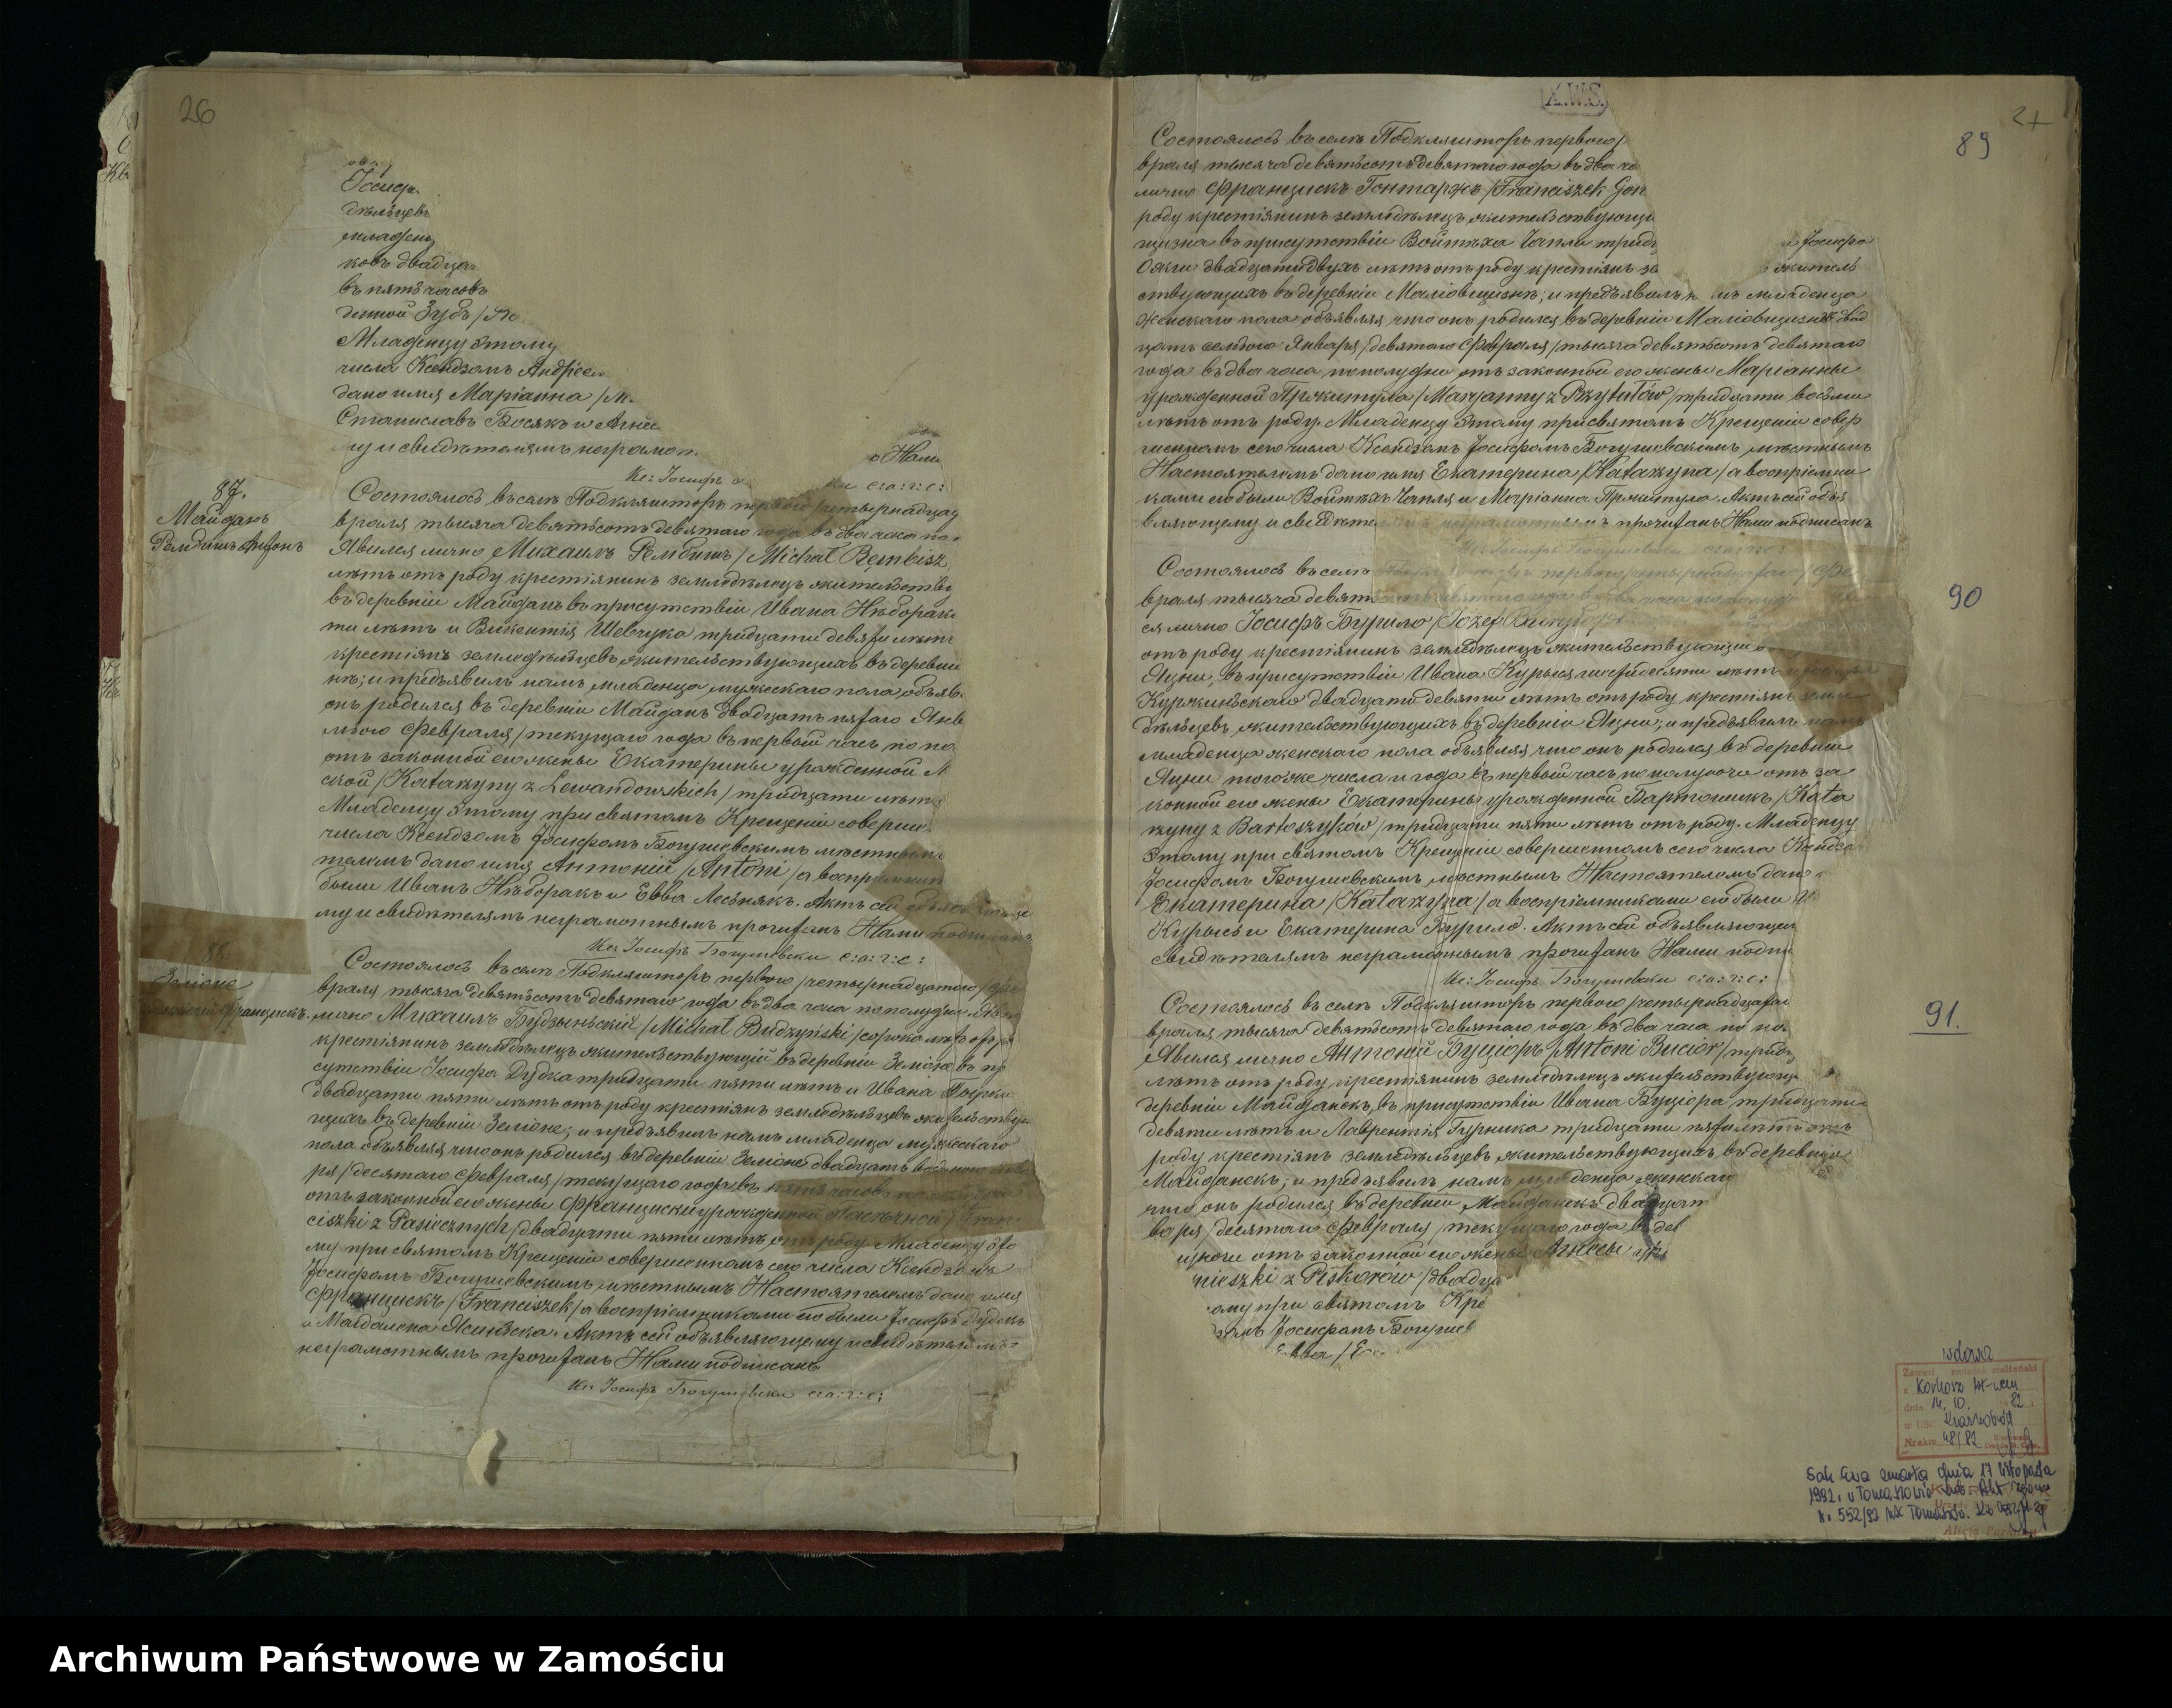 26
Іосиф
дѣльцевъ
младенц
ковъ двадца
въ пять часовъ
денной Зубъ /
Младенцу этому
числа Ксендзомъ Андрее
дано имя Маріанна /М.
Станиславъ Босякъ и Агне
му и свидѣтелямъ неграмот Нами
Кс: Іосифъ ки с:а:г:с:
87.
Майданъ
Рембишъ Антонъ
Состоялось въ селѣ Подкляшторъ перваго /четырнадцат
враля тысяча девятьсотъ девятаго года въ два часа по
Явился лично Михаилъ Рембишъ /Michał Rembisz
лѣтъ отъ роду крестіянинъ земледѣлецъ жительству
въ деревнѣ Майданъ въ присутствіи Ивана Нѣборака
ти лѣтъ и Викентія Шевчука тридцати девяти лѣтъ
крестіянъ земледѣльцевъ жительствующихъ въ деревни
нѣ; и предъявилъ намъ младенца мужескаго пола объяв.
онъ родился въ деревнѣ Майданъ двадцать пятаго Янв
мого Февраля/ текущаго года въ первый часъ по по
отъ законной его жены Екатерины урожденной Л
ской /Katarzyny z Lewandowskich/ тридцати лѣтъ
Младенцу этому при святомъ Крещеніи соверши.
числа Ксендзомъ Іосифомъ Богушевскимъ мѣстнымъ
телемъ дано имя Антоній /Antoni/ а воспріемник
были Иванъ Нѣборакъ и Евва Лесьнякъ. Актъ сей объявляюще
му и свидѣтелямъ неграмотнымъ прочитанъ Нами подписанъ
Кс: Іосифъ Богушевски с:а:г:с:
88.
Зеліоне
Францискъ.
Состоялось въ селѣ Подкляшторъ перваго /четырнадцатаго/ Фе
враля тысяча девятьсотъ девятаго года въ два часа пополудни. Яви
лично Михаилъ Будзыньскій /Michał Budzyński/ сорока лѣтъ отъ ро
крестіянинъ земледѣлецъ жительствующій въ деревнѣ Зеліоне въ пр
сутствіи Іосифа Дудка тридцати пяти лѣтъ и Ивана
двадцати пяти лѣтъ отъ роду крестіянъ земледѣльцевъ жительству
щихъ въ деревнѣ Зеліоне; и предъявилъ намъ младенца мужескаго
пола объявляя что онъ родился въ деревнѣ Зеліоне двадцать восьмого Янва
ря /десятаго Февраля/ текущаго года въ пять часовъ
отъ законной его жены Францишки урожденной Пасѣчной /Fran
ciszki z Pasiecznych/ двадцати пяти лѣтъ отъ роду. Младенцу это
му при святомъ Крещеніи совершенномъ сего числа Ксендзомъ
Іосифомъ Богушевскимъ мѣстнымъ Настоятелемъ дано имя
Францискъ /Franciszek/ а воспріемниками его были Іосифъ Дудекъ
и Магдалена Ясиньска. Актъ сей объявляющему и свидѣтелямъ
неграмотнымъ прочитанъ Нами подписанъ
Кс: Іосифъ Богушевски с:а:г:с:
K.W.S.
89
Состоялось въ селѣ Подкляшторъ перваго/
враля тысяча девятьсотъ девятаго года въ два ча
лично Францискъ Гонтаржъ /Franciszek Gon
роду крестіянинъ земледѣлецъ жительствующі
щизна въ присутствіи Войтѣха Чапли тридц и Іосифа
двадцати двухъ лѣтъ отъ роду крестіянъ зе житель
ствующихъ въ деревнѣ Маліовщизнѣ; и предъявилъ н мъ младенца
женскаго пола объявляя что онъ родился въ деревнѣ Маліовщизнѣ двад
цать седмого Января /девятаго Февраля/ тысяча девятьсотъ девятаго
года въ два часа пополудни отъ законной его жены Маріанны
урожденной Пржитула /Maryanny z Przytułów/ тридцати восьми
лѣтъ отъ роду. Младенцу этому при святомъ Крещеніи совер
шенномъ сего числа Ксендзомъ Іосифомъ Богушевскимъ мѣстнымъ
Настоятелемъ дано имя Екатерина /Katarzyna/ а воспріемни
ками его были Войтѣхъ Чапля и Маріанна Пржитула. Актъ сей объя
вляющему и свидѣтелямъ неграмотнымъ прочитанъ Нами подписанъ
Кс: Іосифъ Богушевски с:а:г:с:
90
Состоялось въ селѣ Подкляшторъ перваго /четырнадцатаго/ Фе
враля тысяча девятьсотъ девятаго года въ два часа пополу
ся лично Іосифъ Бурило /Józef Buryło/
отъ роду крестіянинъ земледѣлецъ жительствующій въ
Яцни, въ присутствіи Ивана Курыся шестидесяти лѣтъ
двадцати девяти лѣтъ отъ роду крестіянъ земле
дѣльцевъ жительствующихъ въ деревнѣ Яцни; и предъявилъ намъ
младенца женскаго пола объявляя что онъ родился въ деревнѣ
Яцни того же числа и года въ первый часъ по полуночи отъ за
конной его жены Екатерины урожденной Бартошикъ /Kata
rzyny z Bartoszyków/ тридцати пяти лѣтъ отъ роду. Младенцу
этому при святомъ Крещеніи совершенномъ сего числа Ксендзо
Іосифомъ Богушевскимъ мѣстнымъ Настоятелемъ дано
Екатерина /Katarzyna/ а воспріемниками его были И
Курысь и Екатерина Бурило. Актъ сей объявляющем
свидѣтелямъ неграмотнымъ прочитанъ Нами подпи
Кс: Іосифъ Богушевски с:а:г:с:
91.
Состоялось въ селѣ Подкляшторъ перваго /четырнадцатаг
враля тысяча девятьсотъ девятаго года въ два часа по по.
Явился лично Антоній Буціоръ /Antoni Bucior/ тридц
лѣтъ отъ роду крестіянинъ земледѣлецъ жительствующ
деревнѣ Майданекъ, въ присутствіи Ивана Буціора тридцати
девяти лѣтъ и Лаврентія Гурника тридцати пяти лѣтъ отъ
роду крестіянъ земледѣльцевъ жительствующихъ въ деревнѣ
Майданекъ; и предъявилъ намъ младенца женскаго
что онъ родился въ деревнѣ Майданекъ двадцат
варя /десятаго Февраля/ текущаго года въ дев
луночи отъ законной его жены Агнесы уро
nieszki z Piskorów/ двадца
ому при святомъ Кре
зомъ Іосифомъ Богушев
Евва /E
wdowa
Zawarł związek małżeński
dnia 14. 10. 82
w USC Krasnobród
Nr aktu 48/82
Sak Ewa zmarła dnia 17 listopada
1992r. w Tomaszowie Lub. Akt zgonu
Nr 552/92 USC Tomaszów
Archiwum Państwowe w Zamościu